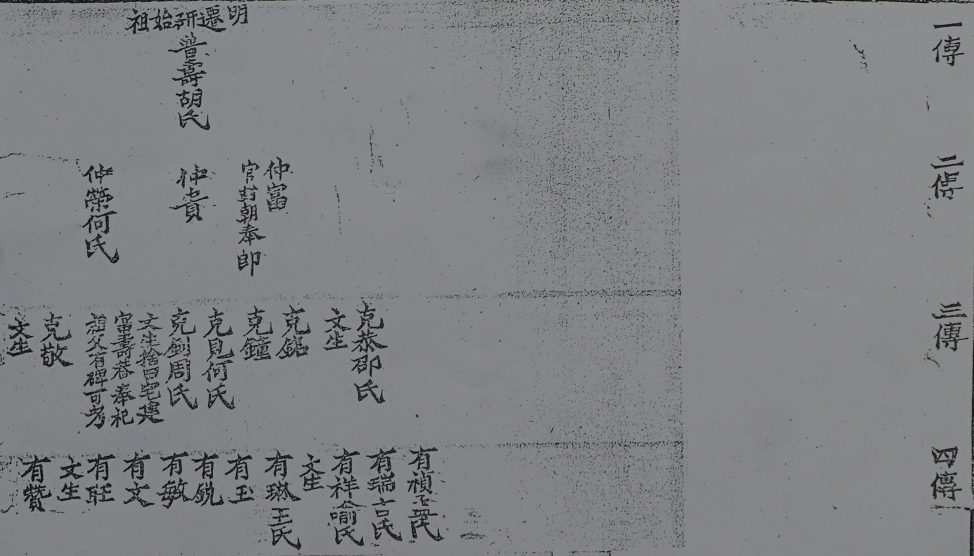 一傳
明遷研始祖
普壽胡氏
二傳
仲富
官封朝奉郎
仲貴
仲榮何氏
三傳
克恭邵氏
文生
克銘
克鐘
克見何氏
克釗周氏
文生捨田宅建
富壽菴奉祀
祖父有碑可考
克敬
文生
四傳
有禎
有瑞吉氏
有祥喻氏
文生
有琳王氏
有玉
有銳
有敏
有文
有旺
文生
有贊